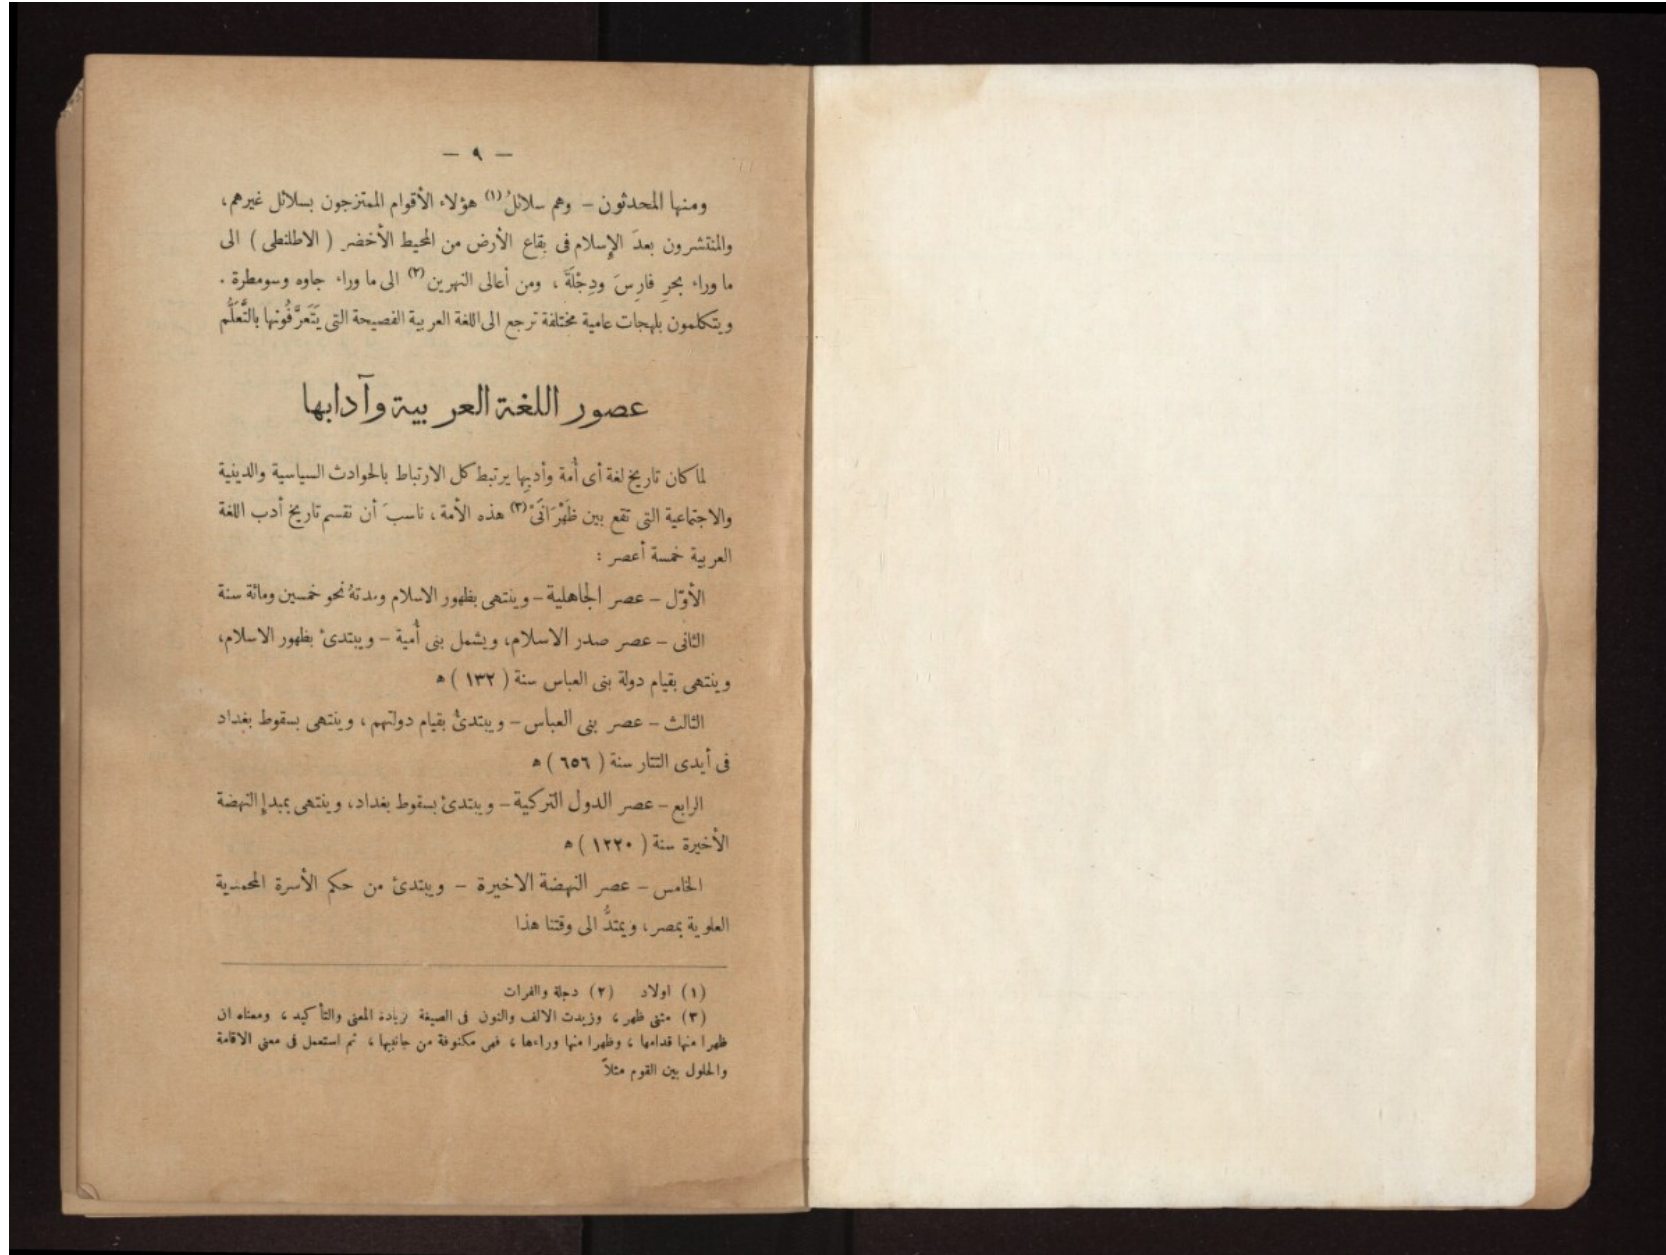 — ٩ —
ومنها المحدثون – وهم سلائلُ (١) هؤلاء الأقوام الممتزجون بسلائل غيرهم،
والمنتشرون بعدَ الإِسلام فى بقاع الأرض من المحيط الأخضر ( الاطلنطى ) الى
ما وراء بحرِ فارِسَ ودِجْلَةَ ، ومن أعالى النهرين (٢) الى ما وراء جاوه وسومطرة .
ويتكلمون بلهجات عامية مختلفة ترجع الى اللغة العربية الفصيحة التى يَتَعرَّفُونها بالتَّعَلُّم
عصور اللغة العربية وآدابها
لما كان تاريخ لغة أى أُمة وأدبِها يرتبط كل الارتباط بالحوادث السياسية والدينية
والاجتماعية التى تقع بين ظَهْرَانَىْ (٣) هذه الأمة ، ناسبَ أن نقسم تاريخ أدب اللغة
العربية خمسة أعصر :
الأوّل – عصر الجاهلية – وينتهى بظهور الاسلام ومدتهُ نحو خمسين ومائة سنة
الثانى – عصر صدر الاسلام، ويشمل بنى أُمية – ويبتدئ بظهور الاسلام،
وينتهى بقيام دولة بنى العباس سنة ( ١٣٢ ) ه
الثالث – عصر بنى العباس – ويبتدئُ بقيام دولتهم ، وينتهى بسقوط بغداد
فى أيدى التتار سنة ( ٦٥٦ ) ه
الرابع – عصر الدول التركية – ويبتدئ بسقوط بغداد، وينتهى بمبدإ النهضة
الأخيرة سنة ( ١٢٢٠ ) ه
الخامس – عصر النهضة الاخيرة – ويبتدئ من حكم الأسرة المحمدية
العلوية بمصر، ويمتدُّ الى وقتنا هذا
(١) اولاد (٢) دجلة والفرات
(٣) مثنى ظهر ، وزيدت الالف والنون فى الصيغة لزيادة المعنى والتأكيد ، ومعناه ان
ظهرا منها قدامها ، وظهرا منها وراءها ، فهى مكنوفة من جانبيها ، ثم استعمل فى معنى الاقامة
والحلول بين القوم مثلاً